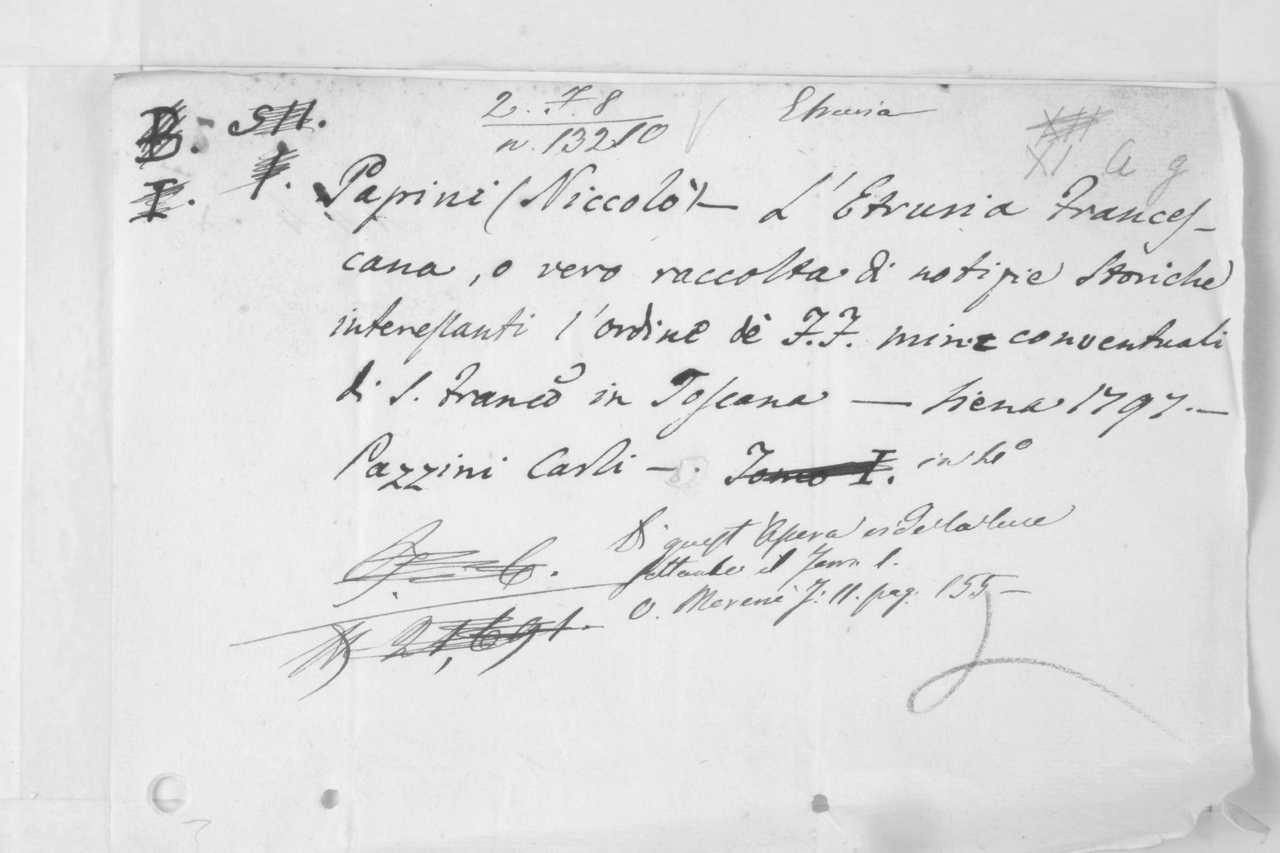 2. 7. 8
n. 13210
Etruria
XI a g
Papini (Niccolò) — L'Etruria Frances-
cana, o vero raccolta di notizie Storiche
interessanti l'ordine de' F.F. min.i conventuali
di S. Franco in Toscana — Siena 1797. —
Pazzini Carli — . Tomo I. in 4º
Di quest'Opera vide la luce
soltanto il Tomo I.
V. Moreni T. II. pag. 155 —